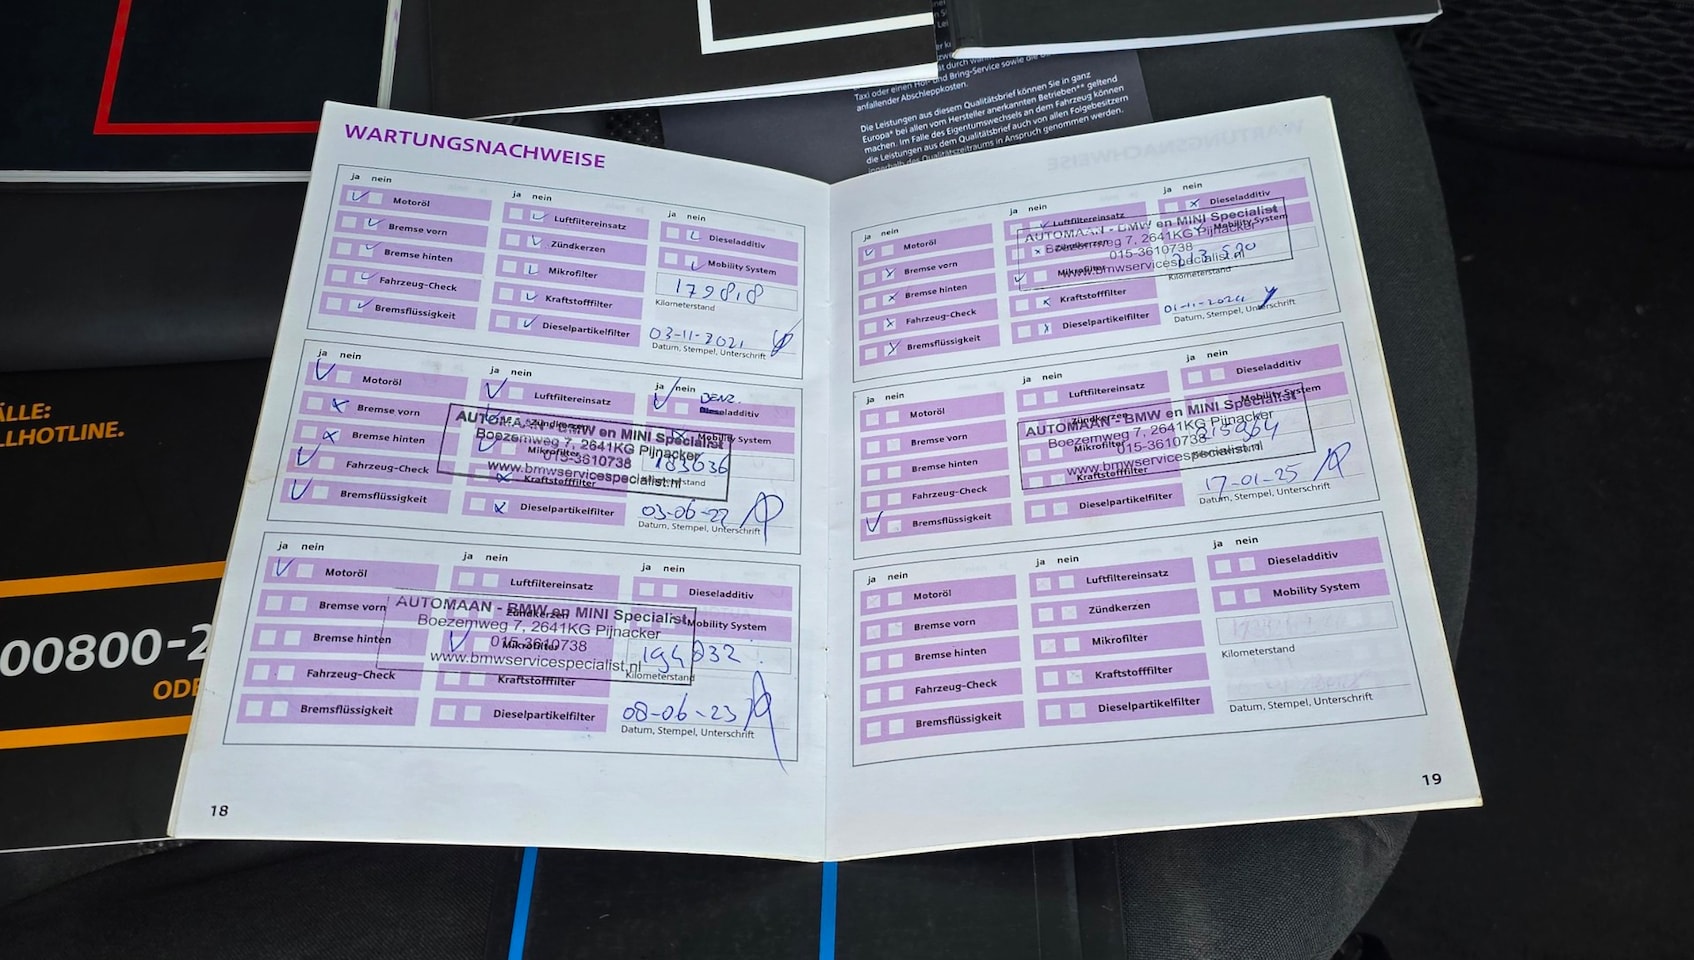 Taxi oder einen Hol- und Bring-Service sowie die
anfallender Abschleppkosten.
Die Leistungen aus diesem Qualitätsbrief können Sie in ganz
Europa* bei allen vom Hersteller anerkannten Betrieben** geltend
machen. Im Falle des Eigentumswechsels an dem Fahrzeug können
die Leistungen aus dem Qualitätsbrief auch von allen Folgebesitzern
innerhalb des Qualitätszeitraums in Anspruch genommen werden.
ÄLLE:
LLHOTLINE.
00800-2
ODE
WARTUNGSNACHWEISE
ja nein
Motoröl
Bremse vorn
Bremse hinten
Fahrzeug-Check
Bremsflüssigkeit
ja nein
Luftfiltereinsatz
Zündkerzen
Mikrofilter
Kraftstofffilter
Dieselpartikelfilter
ja nein
Dieseladditiv
Mobility System
179818
Kilometerstand
03-11-2021
Datum, Stempel, Unterschrift
ja nein
Motoröl
Bremse vorn
Bremse hinten
Fahrzeug-Check
Bremsflüssigkeit
ja nein
Luftfiltereinsatz
Zündkerzen
Mikrofilter
Kraftstofffilter
Dieselpartikelfilter
ja nein
BENZ.
Dieseladditiv
Mobility System
183636
Kilometerstand
03-06-22
Datum, Stempel, Unterschrift
AUTOMAAN - BMW en MINI Specialist
Boezemweg 7, 2641KG Pijnacker
015-3610738
www.bmwservicespecialist.nl
ja nein
Motoröl
Bremse vorn
Bremse hinten
Fahrzeug-Check
Bremsflüssigkeit
ja nein
Luftfiltereinsatz
Zündkerzen
Mikrofilter
Kraftstofffilter
Dieselpartikelfilter
ja nein
Dieseladditiv
Mobility System
194032
Kilometerstand
08-06-23
Datum, Stempel, Unterschrift
AUTOMAAN - BMW en MINI Specialist
Boezemweg 7, 2641KG Pijnacker
015-3610738
www.bmwservicespecialist.nl
18
ja nein
Motoröl
Bremse vorn
Bremse hinten
Fahrzeug-Check
Bremsflüssigkeit
ja nein
Luftfiltereinsatz
Zündkerzen
Mikrofilter
Kraftstofffilter
Dieselpartikelfilter
ja nein
Dieseladditiv
Mobility System
Kilometerstand
01-11-2024
Datum, Stempel, Unterschrift
AUTOMAAN - BMW en MINI Specialist
Boezemweg 7, 2641KG Pijnacker
015-3610738
www.bmwservicespecialist.nl
ja nein
Motoröl
Bremse vorn
Bremse hinten
Fahrzeug-Check
Bremsflüssigkeit
ja nein
Luftfiltereinsatz
Zündkerzen
Mikrofilter
Kraftstofffilter
Dieselpartikelfilter
ja nein
Dieseladditiv
Mobility System
215964
Kilometerstand
17-01-25
Datum, Stempel, Unterschrift
AUTOMAAN - BMW en MINI Specialist
Boezemweg 7, 2641KG Pijnacker
015-3610738
www.bmwservicespecialist.nl
ja nein
Motoröl
Bremse vorn
Bremse hinten
Fahrzeug-Check
Bremsflüssigkeit
ja nein
Luftfiltereinsatz
Zündkerzen
Mikrofilter
Kraftstofffilter
Dieselpartikelfilter
ja nein
Dieseladditiv
Mobility System
Kilometerstand
Datum, Stempel, Unterschrift
19